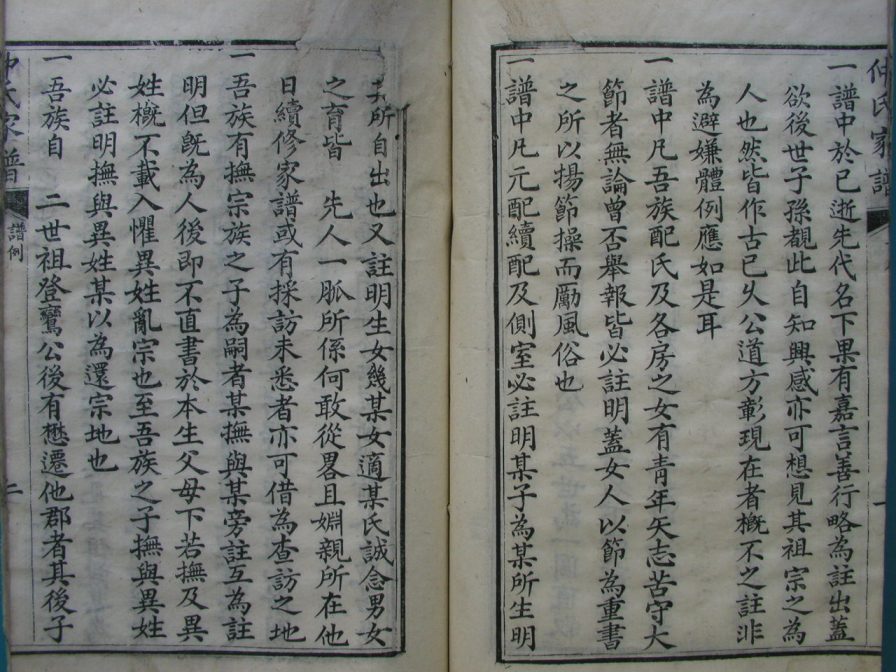 仲氏家譜
一譜中於已逝先代名下果有嘉言善行略為註出蓋
欲後世子孫覩此自知興感亦可想見其祖宗之為
人也然皆作古已久公道方彰現在者概不之註非
為避嫌體例應如是耳
一譜中凡吾族配氏及各房之女有青年矢志苦守大
節者無論曾否舉報皆必註明蓋女人以節為重書
之所以揚節操而勵風俗也
一譜中凡元配續配及側室必註明某子為某所生明
其所自出也又註明生女幾某女適某氏誠念男女
之育皆 先人一脈所係何敢從畧且婣親所在他
日續修家譜或有採訪未悉者亦可借為查訪之地
一吾族有撫宗族之子為嗣者某撫與某旁註互為註
明但旣為人後即不直書於本生父母下若撫及異
姓概不載入懼異姓亂宗也至吾族之子撫與異姓
必註明撫與異姓某以為還宗地也
一吾族自 二世祖登鸞公後有懋遷他郡者其後子
仲氏家譜
譜例
二